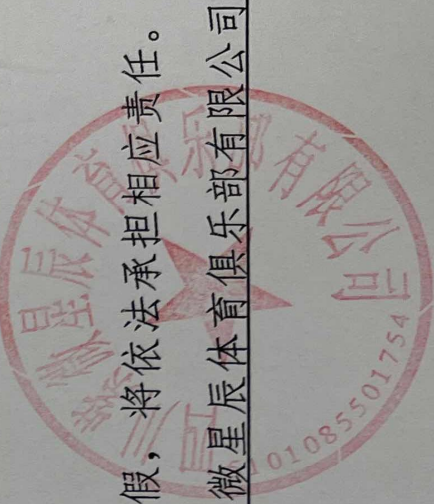 假，将依法承担相应责任。
微星辰体育俱乐部有限公司
微星辰体育俱乐部有限公司
01085501754